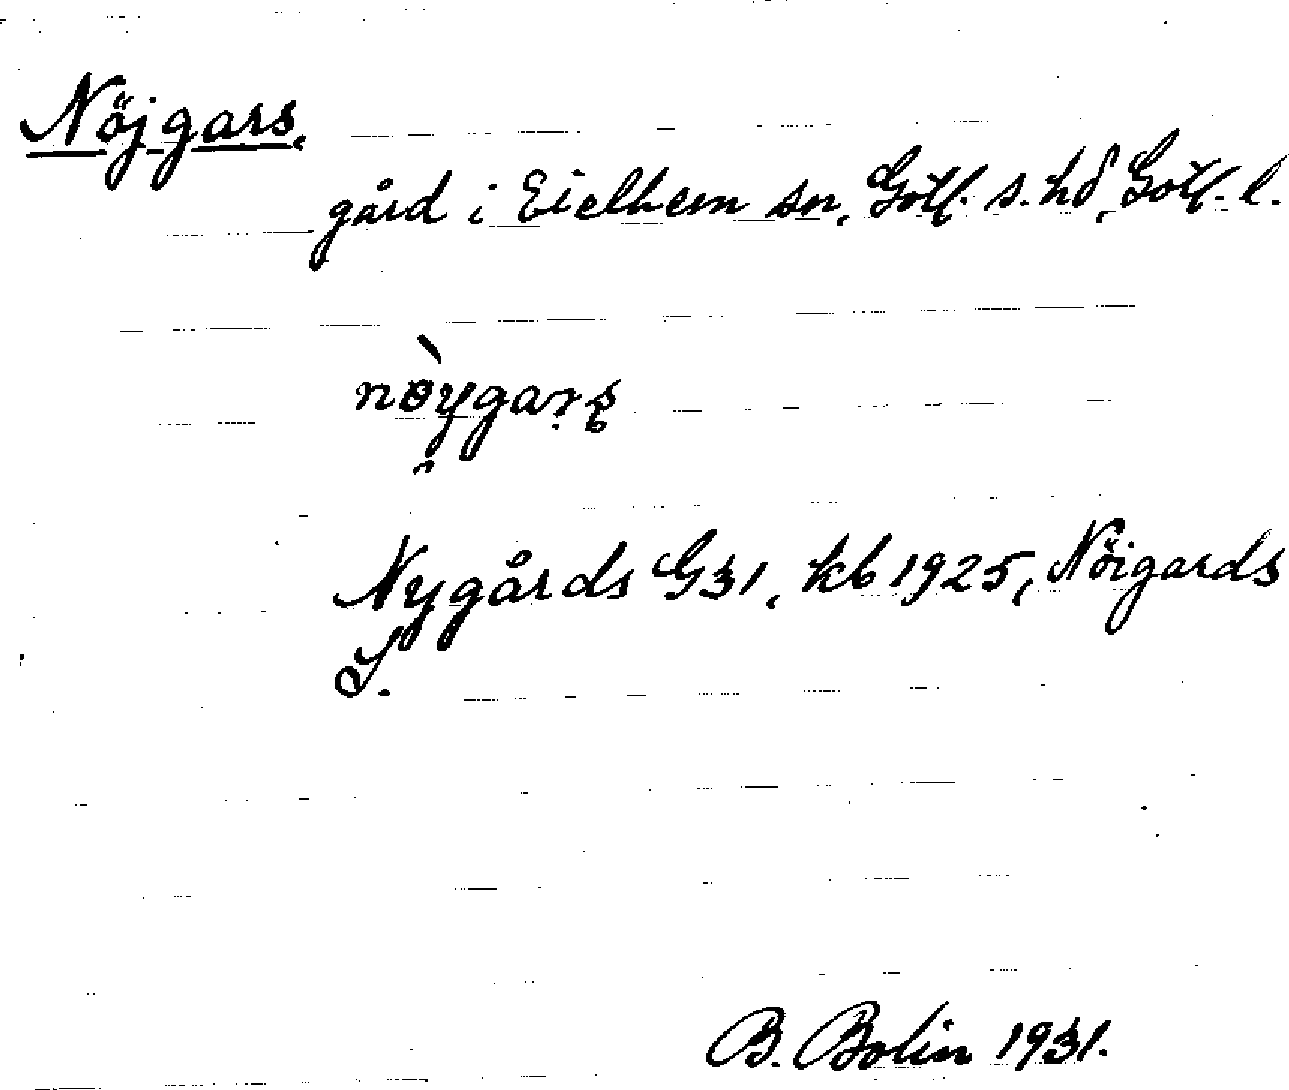 Nöjgars,
gård i Eielhem sn, Gotl. s. hd, Gotl. l.
nöygars
Nygårds G31, kb 1925, Nöigards
S.
B. Bolin 1931.